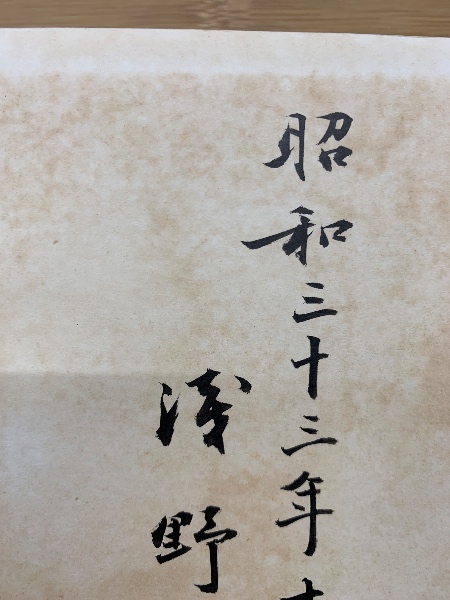 昭和三十三年
淺野